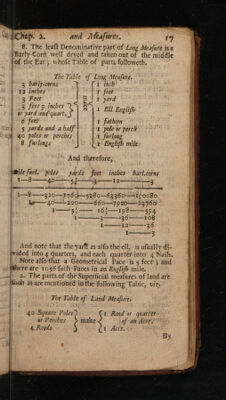 Chap. 2. and Measures. 17
8. The least Denominative part of Long Measure is a
Barly-Corn well dryed and taken out of the middle
of the Ear; whose Table of parts followeth.
The Table of Long Measure.
3 barly-corns 1 inch
12 inches 1 foot
3 Feet 1 yard
3 feet 9 inches
or yard and quart. 1 Ell English
6 feet make 1 fathom
5 yards and a half 1 pole or perch
40 poles or perches 1 furlong
8 furlongs 1 English mile
And therefore,
mile furl. poles yards feet inches barl.corns
1—8—40—5½—3—12—3
1—8—320—1760—5280—63360—190080
1—40—220—660—7920—23760
1—5½—16½—198—594
1—3—36—108
1—12—36
1—3
And note that the yard as also the ell, is usually di-
vided into 4 quarters, and each quarter into 4 Nails.
Note also that a Geometrical Pace is 5 feet; and
there are 1056 such Paces in an English mile.
2. The parts of the Superficial measures of land are
such as are mentioned in the following Table, viz.
The Table of Land Measure.
40 Square Poles 1 Rood or quarter
or Perches make of an Acre.
4 Roods 1 Acre.
By